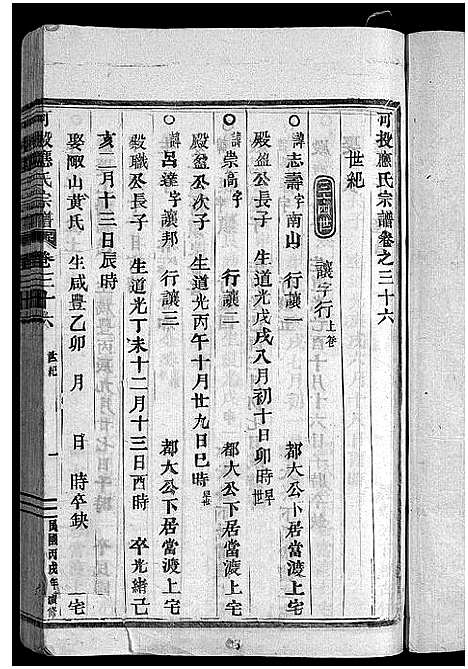 河投應氏宗譜卷之三十六
世紀
三十四世 讓字行 上卷
諱志壽字南山 行讓一 都大公下居當渡上宅
殿盈公長子 生道光戊戌八月初十日卯時 早世
諱崇高字 行讓二 都大公下居當渡上宅
殿盈公次子 生道光丙午十月廿九日巳時 早世
諱呂達字讓邦 行讓三 都大公下居當渡上宅
殿職公長子 生道光丁未十二月十三日酉時 卒光緒己
亥二月十三日辰時
娶陬山黃氏 生咸豐乙卯 月 日 時卒缺 宅
河投應氏宗譜 卷三十六 世紀 一 民國丙戌年續修